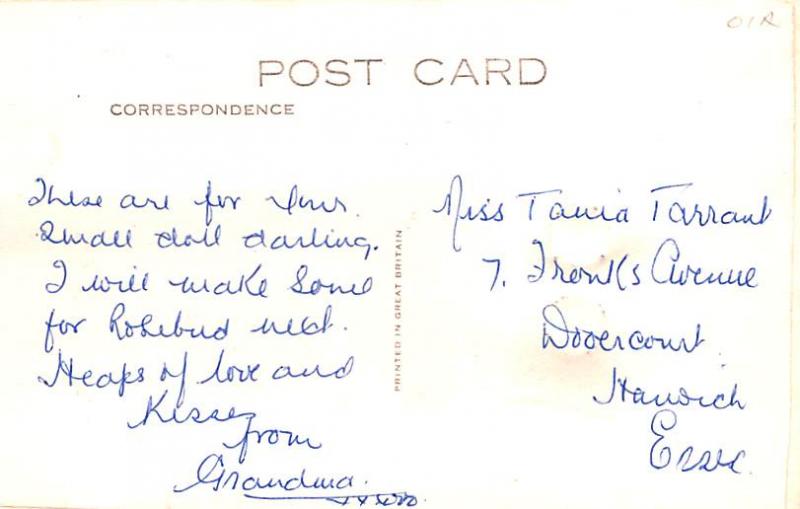 OIR
POST CARD
CORRESPONDENCE
These are for your
small doll darling.
I will make some
for Rosebud next.
Heaps of love and
Kisses
from
Grandma.
PRINTED IN GREAT BRITAIN
Miss Tania Tarrant
7, Fronks Avenue
Dovercourt
Harwich
Essex.